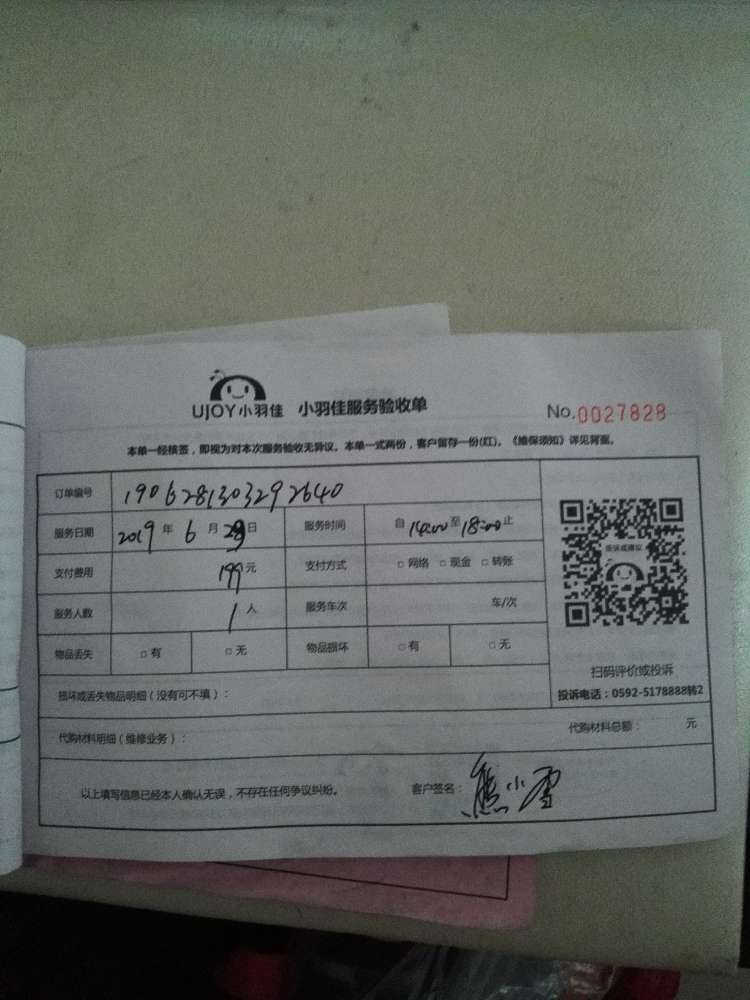 UJOY小羽佳 小羽佳服务验收单 No.0027828
本单一经核签，即视为对本次服务验收无异议。本单一式两份，客户留存一份(红)。《维保须知》详见背面。
订单编号 1906281303292640
服务日期 2019年6月29日 服务时间 自14:00至18:00止
支付费用 199元 支付方式 □网络 □现金 □转账
服务人数 1人 服务车次 车/次
物品丢失 □有 □无 物品损坏 □有 □无
投诉或建议
扫码评价或投诉
投诉电话：0592-5178888转2
损坏或丢失物品明细（没有可不填）：
代购材料明细（维修业务）： 代购材料总额： 元
以上填写信息已经本人确认无误，不存在任何争议纠纷。 客户签名：熊小雪